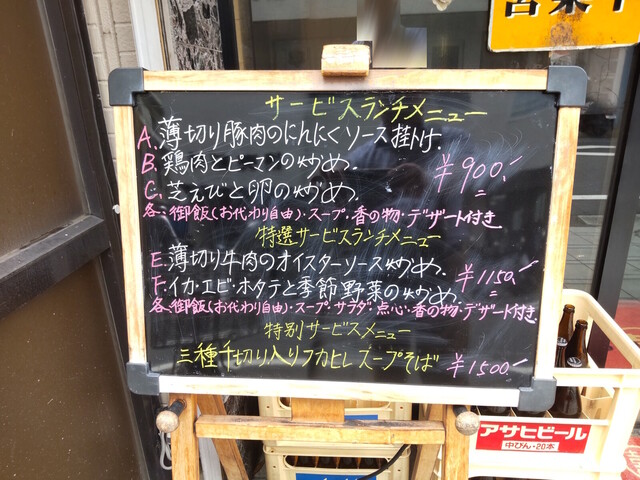 営業中
サービスランチメニュー
A. 薄切り豚肉のにんにくソース掛け.
B. 鶏肉とピーマンの炒め.
C. 芝えびと卵の炒め.
¥900.-
各: 御飯(お代わり自由)・スープ・香の物・デザート付き
特選サービスランチメニュー
E. 薄切り牛肉のオイスターソース炒め.
F. イカ・エビ・ホタテと季節野菜の炒め.
¥1150.-
各、御飯(お代わり自由)・スープ・サラダ・点心・香の物・デザート付き
特別サービスメニュー
三種千切り入りフカヒレスープそば ¥1500.-
アサヒビール
中びん・20本